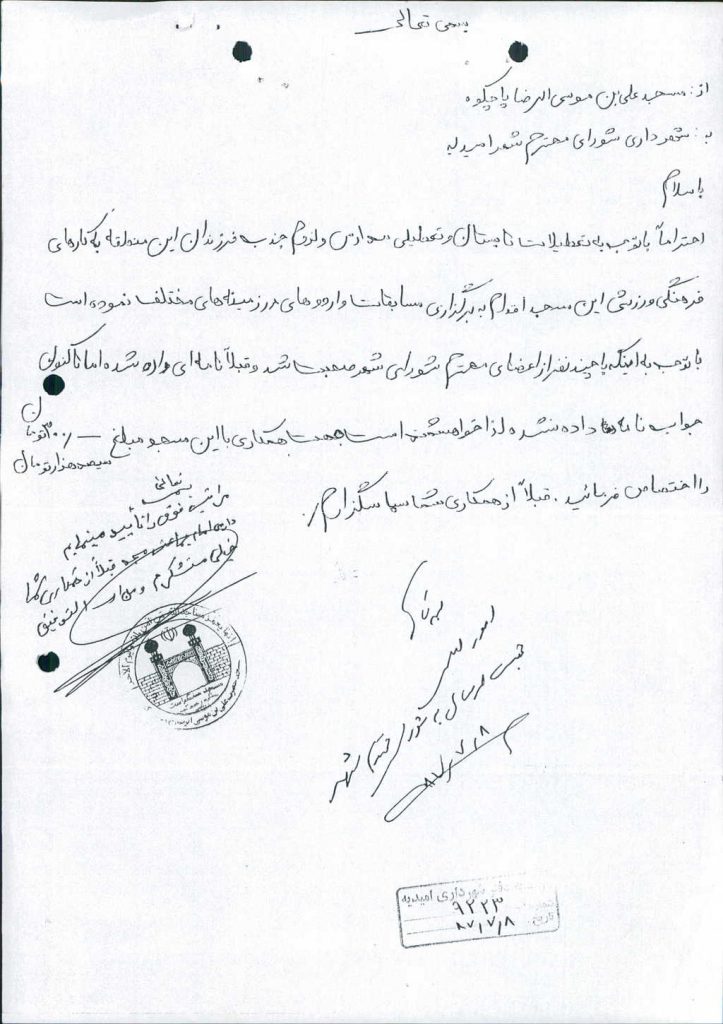 بسمی تعالی
از: مسجد علی بن موسی الرضا پاچکوه
به: شهرداری شورای محترم شهر امیدیه
باسلام
احتراماً با توجه به تعطیلات تابستان و تعطیلی مدارس و لزوم جذب فرزندان این منطقه به کارهای
فرهنگی ورزشی این مسجد اقدام به برگزاری مسابقات و اردوهای در زمینه های مختلف نموده است
با توجه به اینکه با چند نفر از اعضای محترم شورای شهر صحبت شد و قبلاً نامه ای داده شده اما تاکنون
جواب نامه داده نشده لذا خواهشمند است جهت همکاری با این مسجد مبلغ
سیصد هزار تومان
را اختصاص فرمائید. قبلاً از همکاری شما سپاسگزارم.
بسمه تعالی
مراتب فوق را تأیید مینمایم
قبلاً از همکاری شما
خیلی متشکرم و من الله التوفیق
امور
جهت ارسال به شورای محترم شهر
۸۷/۷/۸
دفتر شهرداری امیدیه
شماره ۹۲۲۳
تاریخ ۸۷/۷/۸